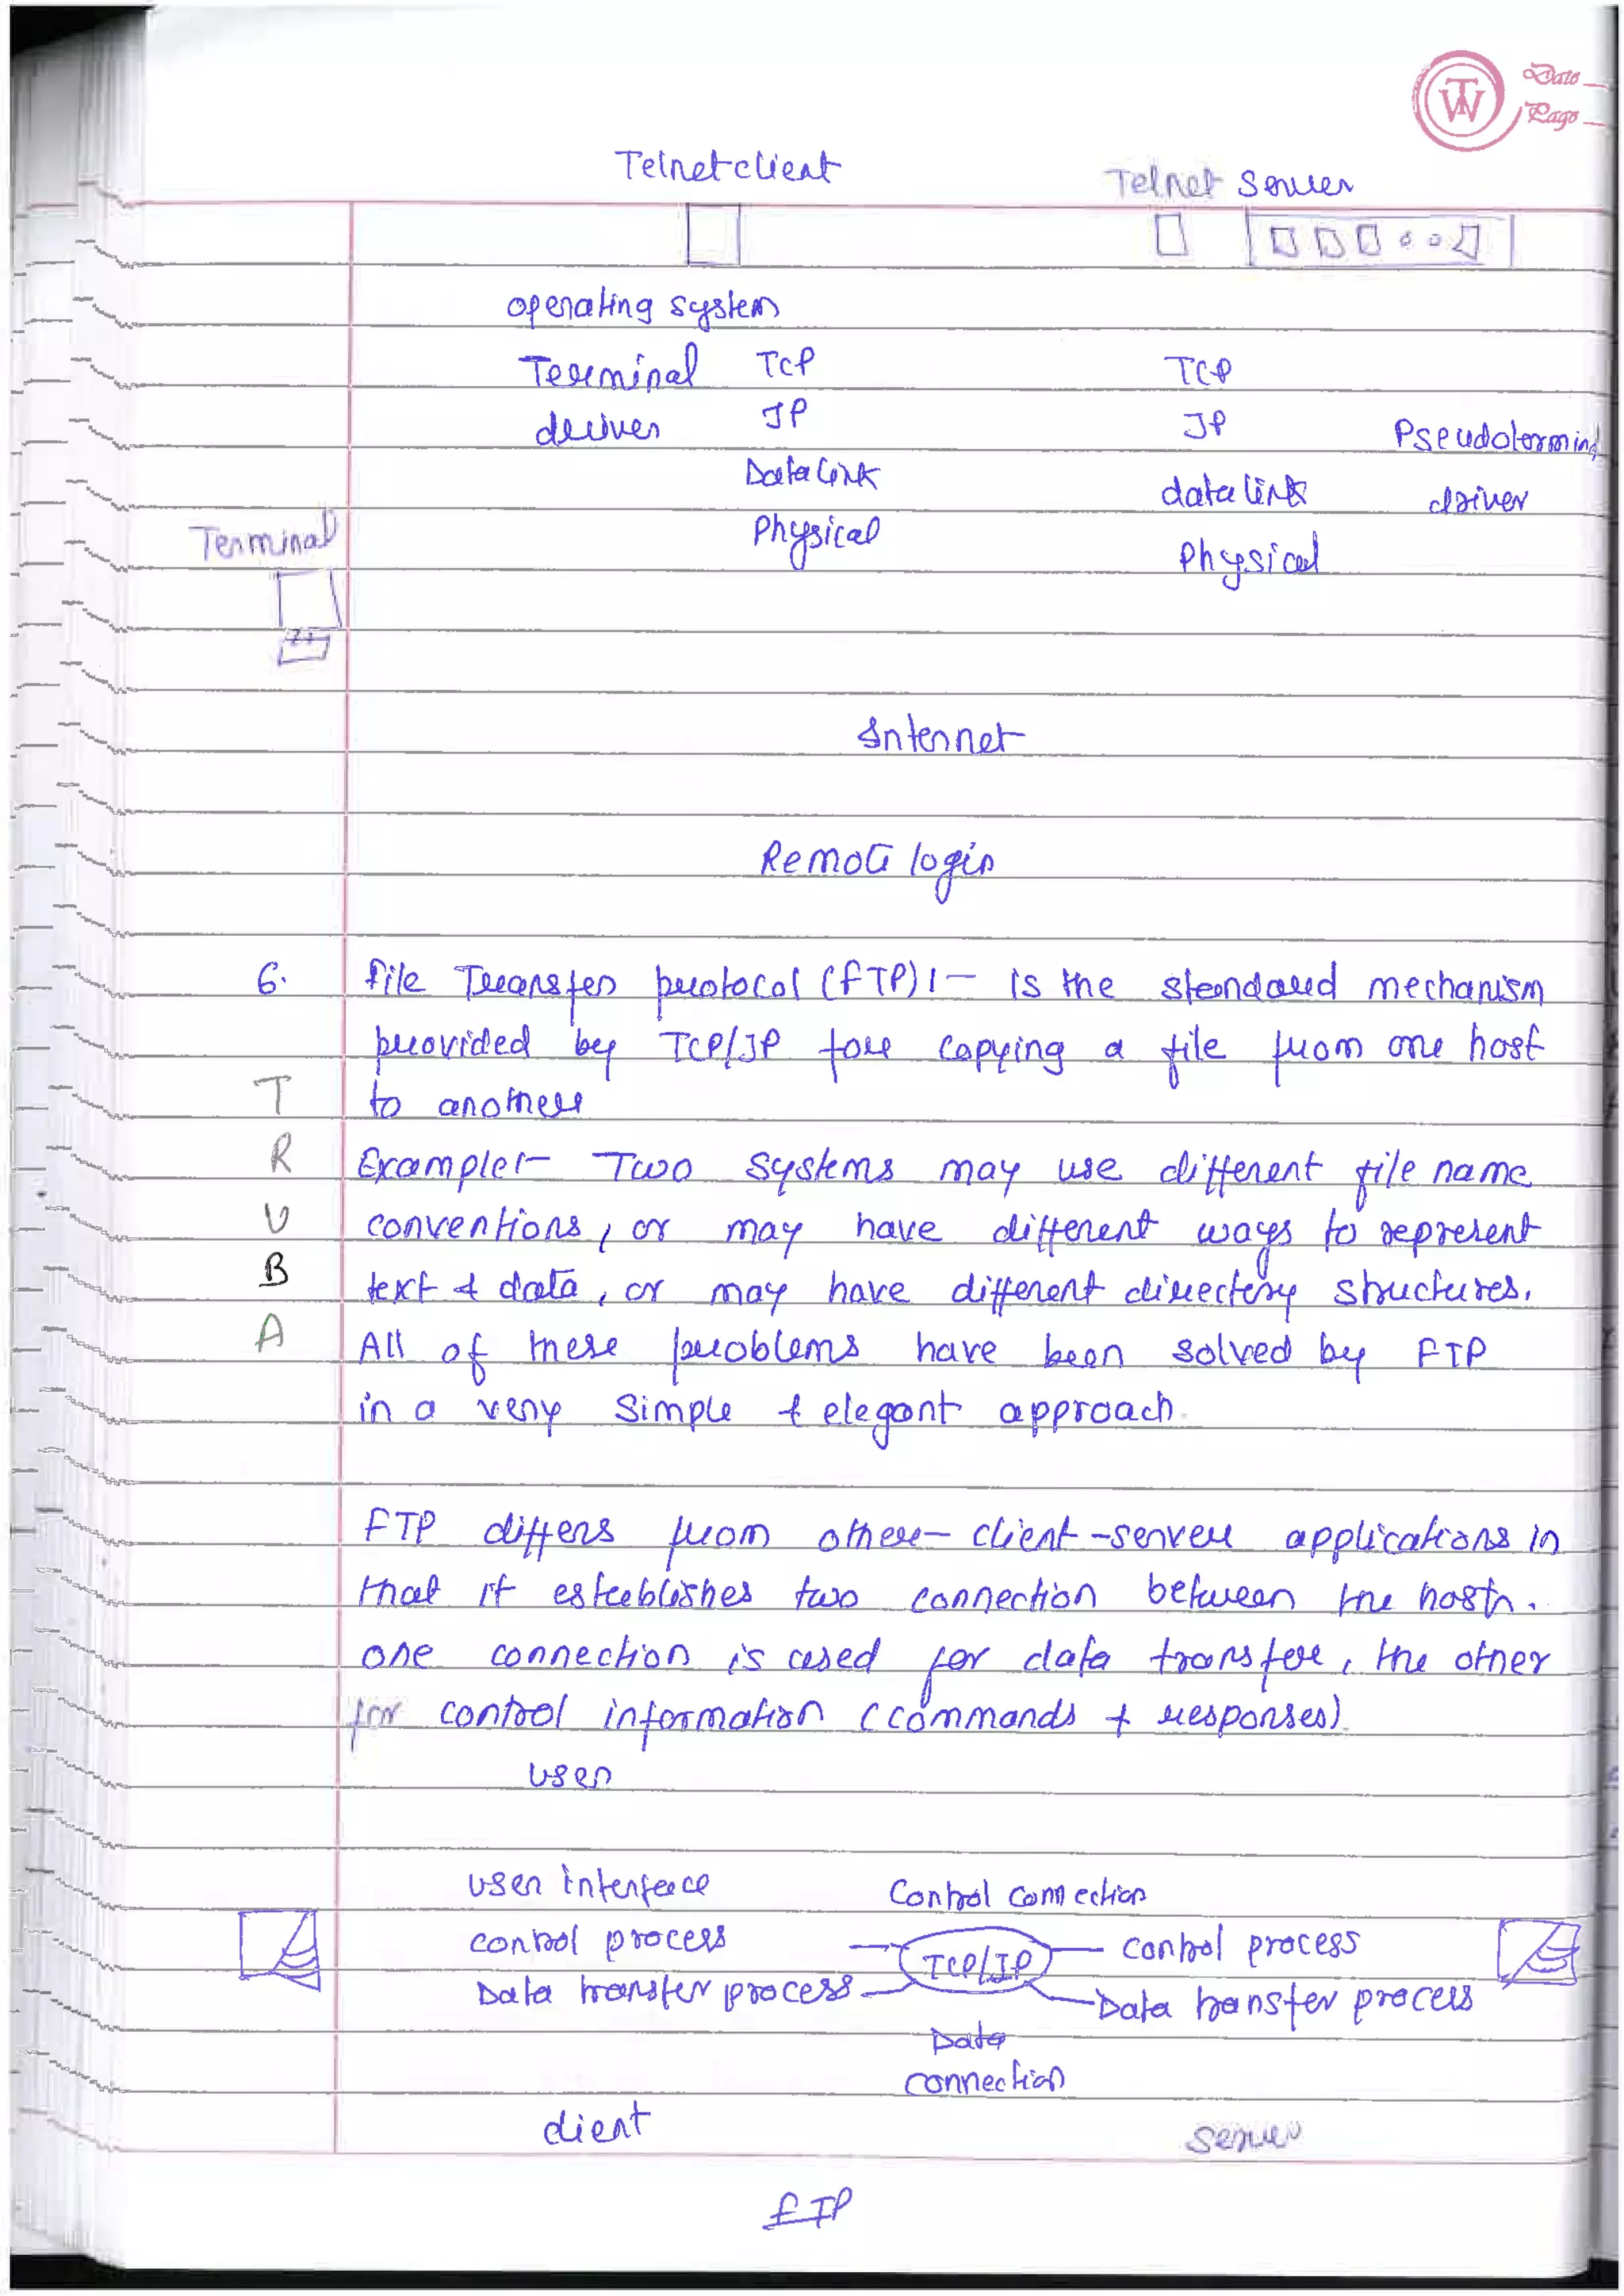 Date
Page
TW
Telnet client Telnet Server
operating system
Terminal TCP TCP
driver IP IP Pseudotermind
Data link data link driver
Terminal Physical Physical
Internet
Remote login
6. File Transfer protocol (FTP) :- is the standard mechanism
provided by TCP/IP for copying a file from one host
T to another
R Example:- Two systems may use different file name
U conventions, or may have different ways to represent
B text & data, or may have different directory structures.
A All of these problems have been solved by FTP
in a very simple & elegant approach.
FTP differs from other-client-server applications in
that it establishes two connection between the hosts.
one connection is used for data transfer, the other
for control information (commands & responses).
user
user interface Control connection
control process TCP/IP control process
Data transfer process Data transfer process
Data
connection
client server
FTP